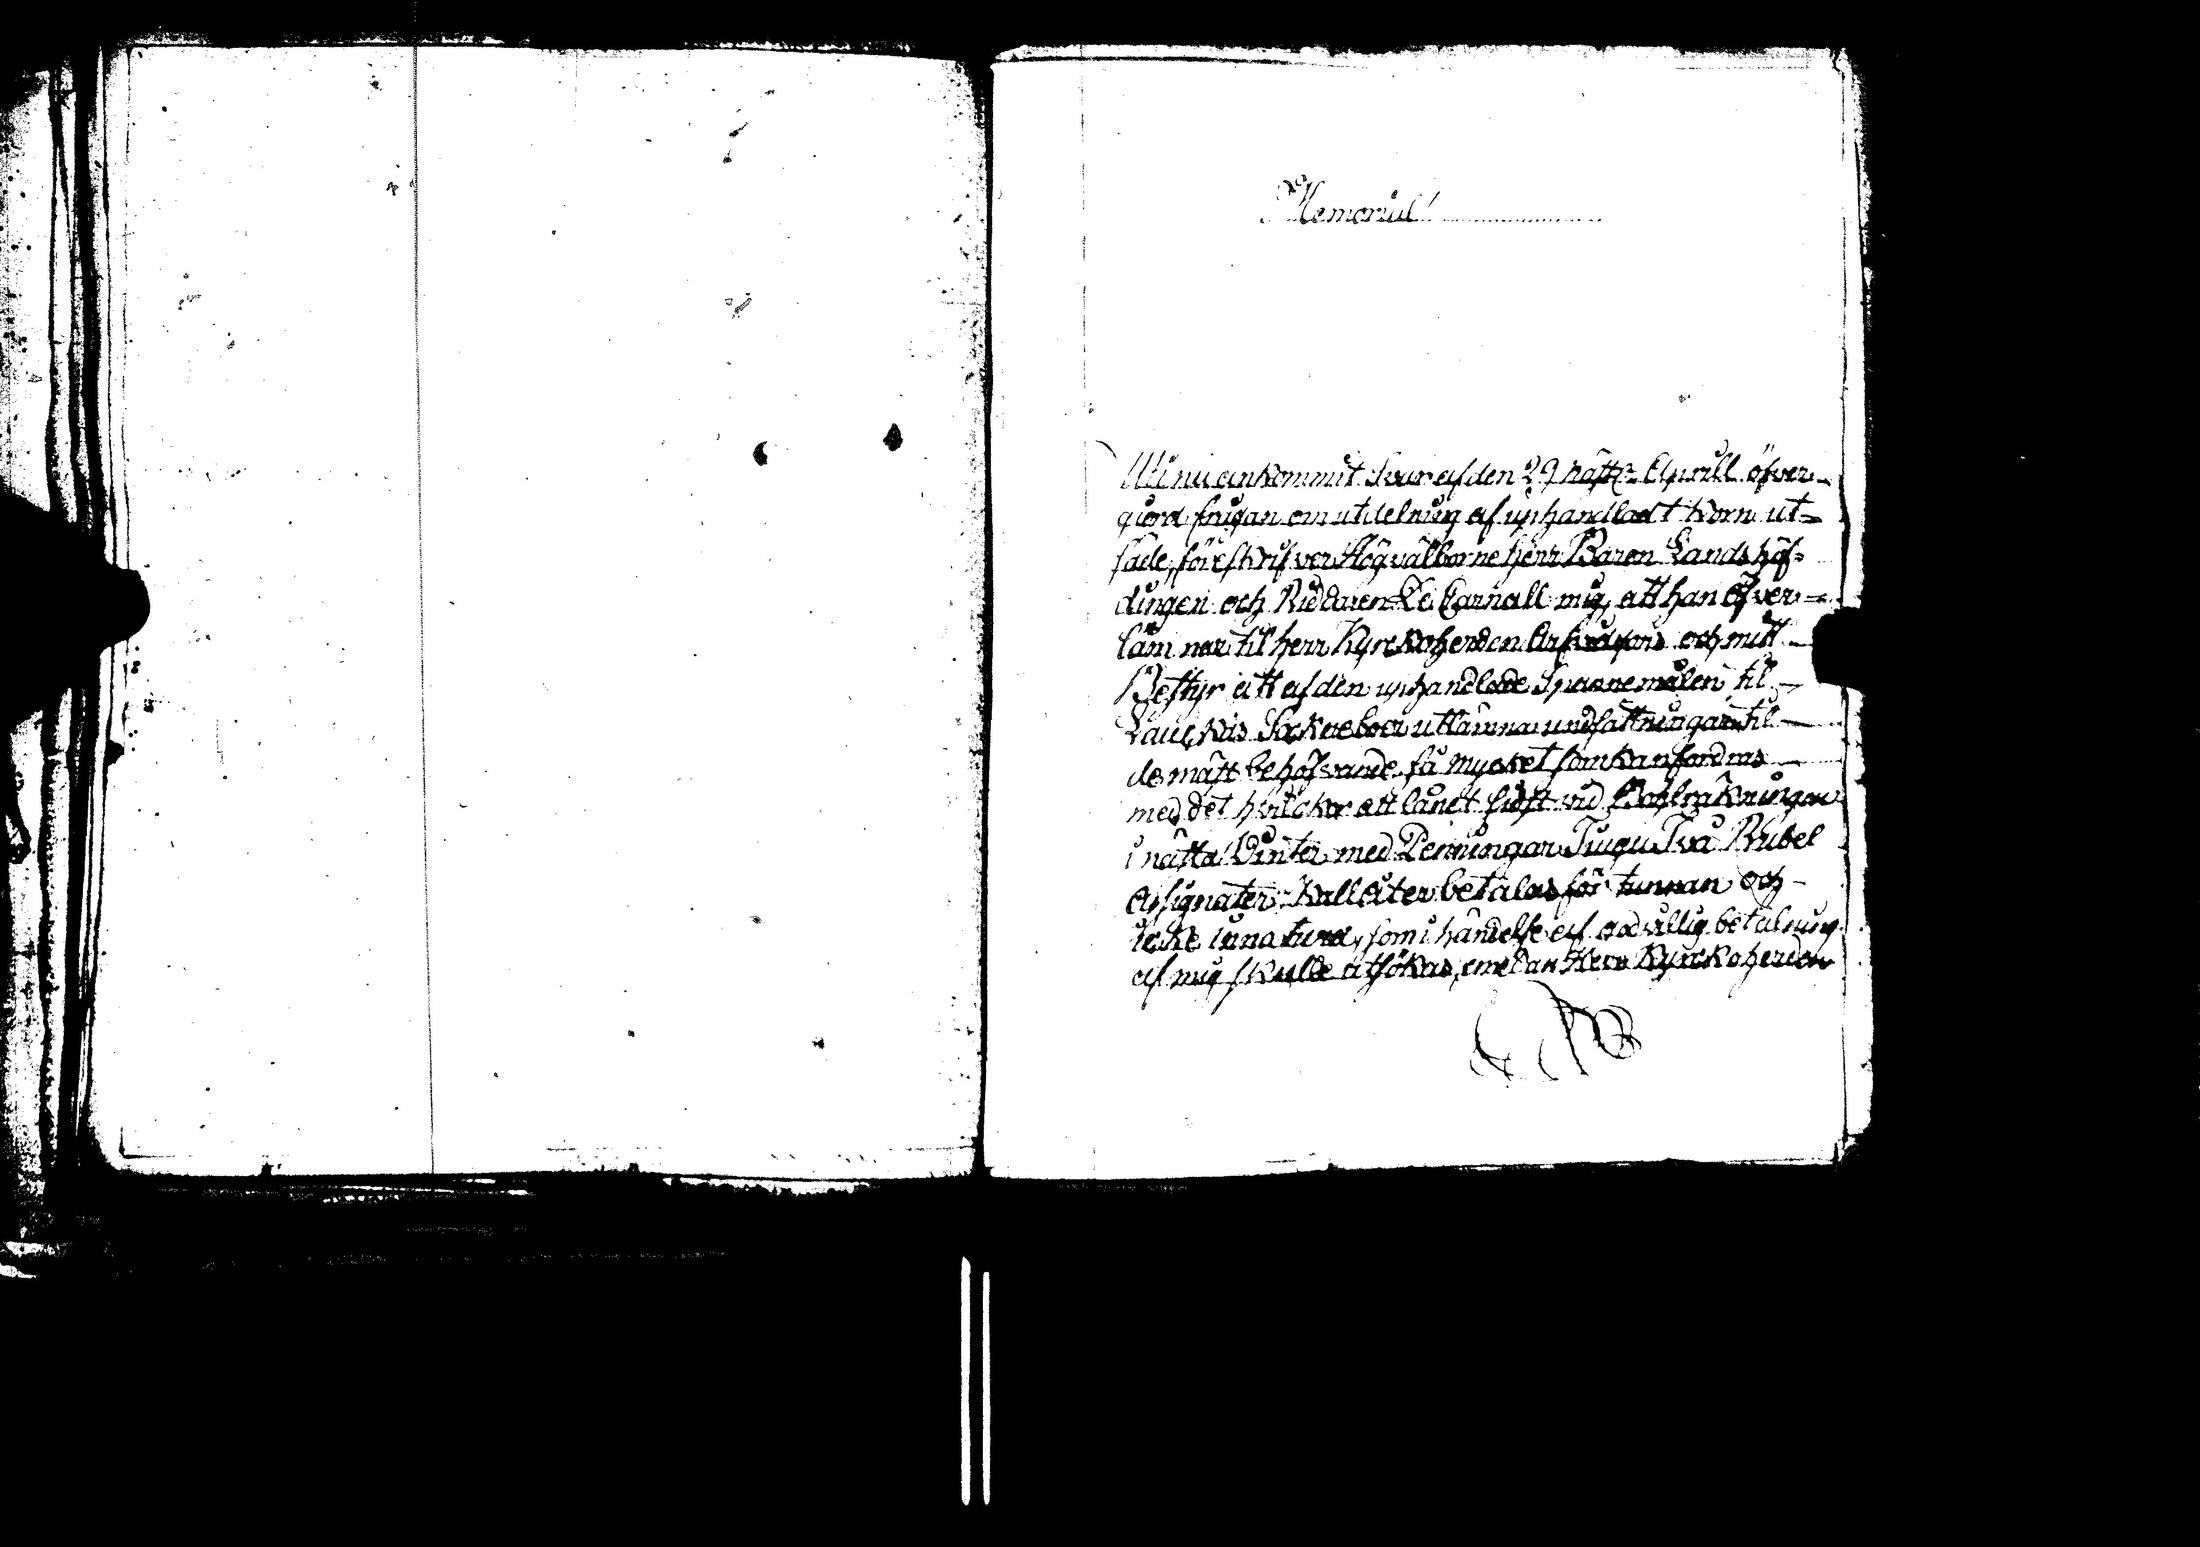 Memorial
Uti nu ankommit Svar af den 29 näst: Aprill öfver
giord frågan om utdelning af uphandladt Korn ut=
säde, föreskrifver Högvälborne herr Baron Landshöf=
dingen och Riddaren De Carnall mig, att han Öfver=
lämnar til herr Kyrckoherden och mitt
Bestyr att af den uphandlade Spannemålen til
Lauckas Sockneboer utlämna undsättningar til
de mäst behöfvande, så mycket som kan fordras
med det hvilckor att lånet sidst vid
i nästa Vinter med Penningar Tiugu Två Rubel
Assignater Kallater betalas för tunnan och
icke innatura, som i händelse af godvillig betalning
af mig skulle utsökas, emedan Herr Kyrckoherden